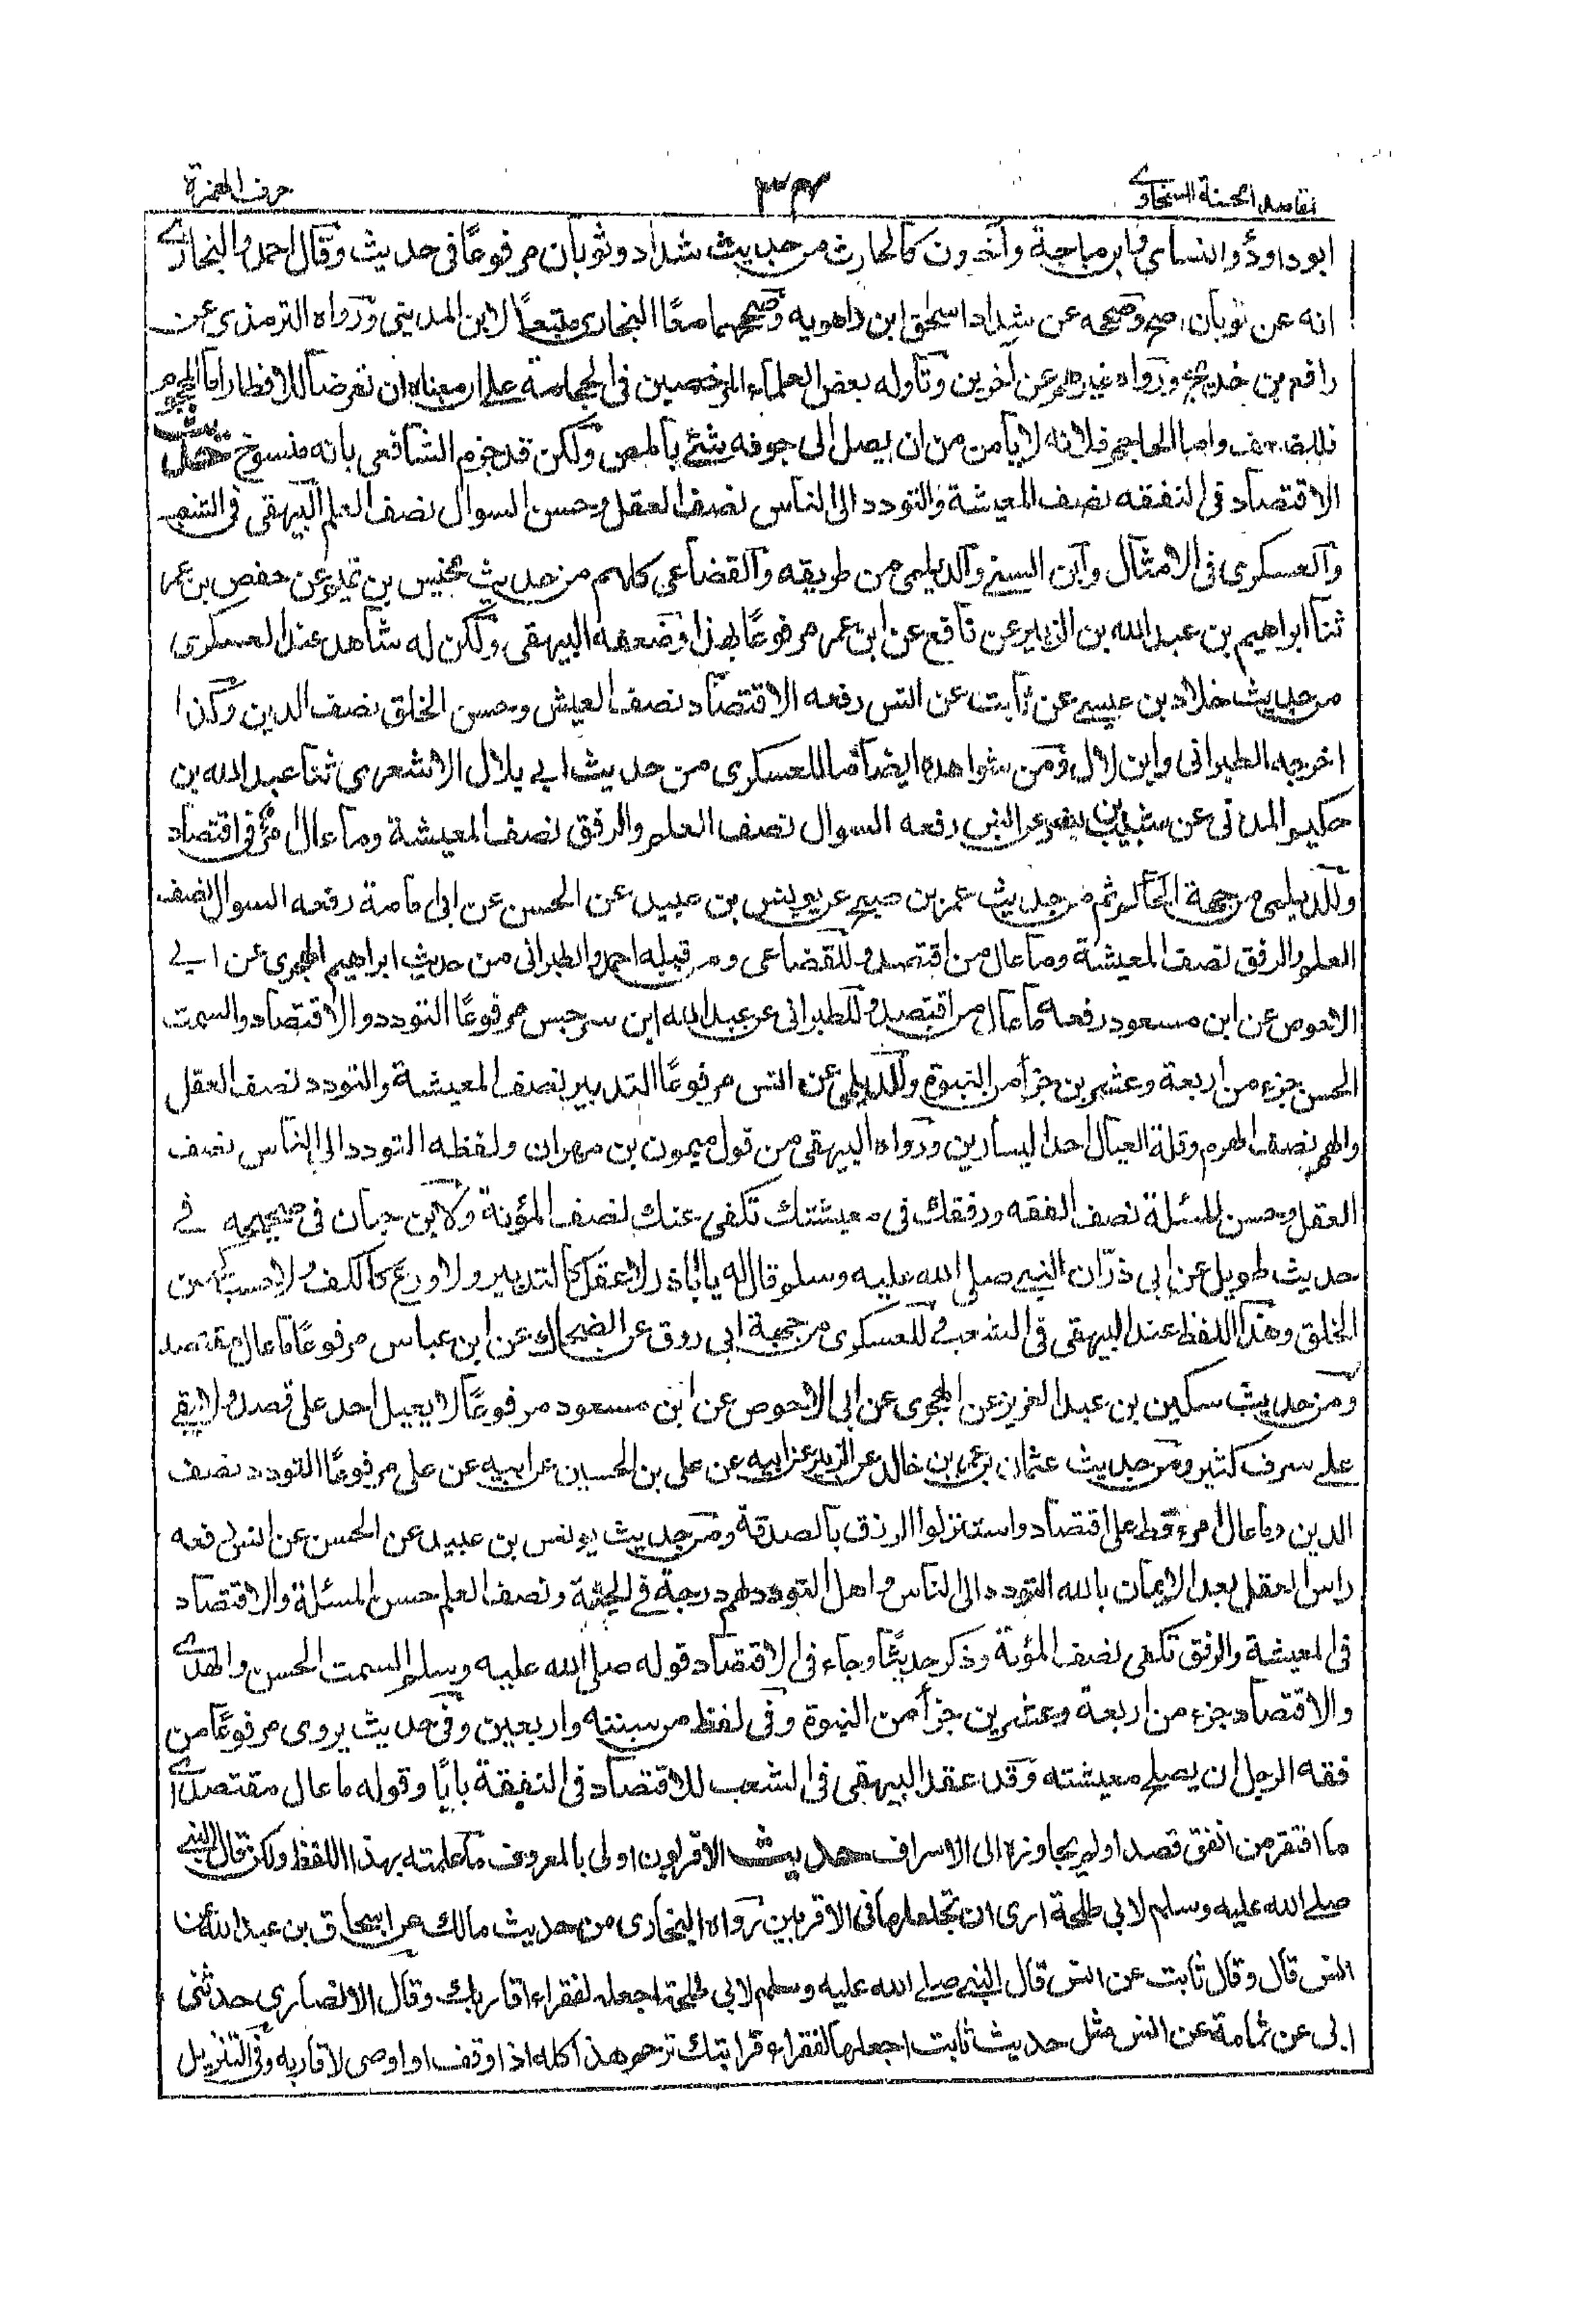 مقاصد الحسنة السخاوي ٣٤ حرف الهمزة
ابوداود والنسائي وابن ماجة وآخرون كالحارث من حديث شداد وثوبان مرفوعًا في حديث وقال احمد والبخاري
انه عن ثوبان صح وصححه عن شداد اسحق ابن راهويه وصححهما معًا البخاري متبعًا لابن المديني ورواه الترمذي عن
رافع بن خديج ورواه غيرهم عن آخرين وتأوله بعض العلماء المرخصين في الحجامة على ان معناه ان تعرضا للافطار اما المحجوم
فللضعف واما الحاجم فلانه لا يأمن من ان يصل الى جوفه شئ بالمص ولكن قد جزم الشافعي بانه منسوخ حديث
الاقتصاد في النفقه نصف المعيشة والتودد الى الناس نصف العقل وحسن السوال نصف العلم البيهقي في الشعب
والعسكري في الامثال وابن السني والديلمي من طريقه والقضاعي كلهم من حديث مخيس بن تميم عن حفص بن عمر
ثنا ابراهيم بن عبد الله بن الزبير عن نافع عن ابن عمر مرفوعًا بهذا وضعفه البيهقي ولكن له شاهد عند العسكري
من حديث خلاد بن عيسى عن ثابت عن انس رفعه الاقتصاد نصف العيش وحسن الخلق نصف الدين وكذا
اخرجه الطبراني وابن لال ومن شواهده ايضا ما للعسكري من حديث ابي بلال الاشعري ثنا عبد الله بن
حكيم المدني عن شبيب بن بشر عن انس رفعه السوال نصف العلم والرفق نصف المعيشة وما عال امرء في اقتصاد
وللديلمي من جهة الحاكم ثم من حديث عمر بن صبح عن يونس بن عبيد عن الحسن عن ابي امامة رفعه السوال نصف
العلم والرفق نصف المعيشة وما عال من اقتصد وللقضاعي ومن قبله احمد والطبراني من حديث ابراهيم الهجري عن ابي
الاحوص عن ابن مسعود رفعه ما عال من اقتصد وللطبراني عن عبد الله ابن سرجس مرفوعًا التودد والاقتصاد والسمت
الحسن جزء من اربعة وعشرين جزأ من النبوة وللديلمي عن انس مرفوعًا التدبير نصف المعيشة والتودد نصف العقل
والهم نصف الهرم وقلة العيال احد اليسارين ورواه البيهقي من قول ميمون بن مهران ولفظه التودد الى الناس نصف
العقل وحسن المسئلة نصف الفقه ورفقك في معيشتك تكفي عنك نصف المؤنة ولابن حبان في صحيحه في
حديث طويل عن ابي ذر ان النبي صلى الله عليه وسلم قال له يا اباذر لا عقل كالتدبير ولا ورع كالكف ولا حسب كحسن
الخلق وهذا اللفظ عند البيهقي في الشعب وللعسكري من جهة ابي روق عن الضحاك عن ابن عباس مرفوعًا ما عال مقتصد
ومن حديث سكين بن عبد العزيز عن الهجري عن ابي الاحوص عن ابن مسعود مرفوعًا لا يعيل احد على قصد ولا يبقى
على سرف كثير ومن حديث عثمان بن عمر بن خالد عن الزبير عن ابيه عن علي بن الحسين عن ابيه عن علي مرفوعًا التودد نصف
الدين وما عال امرء قط على اقتصاد واستنزلوا الرزق بالصدقة ومن حديث يونس بن عبيد عن الحسن عن انس رفعه
راس العقل بعد الايمان بالله التودد الى الناس و اهل التودد لهم درجة في الجنة ونصف العلم حسن المسئلة والاقتصاد
في المعيشة والرفق تكفي نصف المؤنة وذكر حديثا وجاء في الاقتصاد قوله صلى الله عليه وسلم السمت الحسن والهدي
والاقتصاد جزء من اربعة وعشرين جزأ من النبوة وفي لفظ من ستة واربعين وفي حديث يروى مرفوعًا من
فقه الرجل ان يصلح معيشته وقد عقد البيهقي في الشعب للاقتصاد في النفقة بابًا وقوله ما عال مقتصد اي
ما افتقر من انفق قصدا ولم يجاوزه الى الاسراف حديث الاقربون اولى بالمعروف ما علمته بهذا اللفظ ولكن قال النبي
صلى الله عليه وسلم لابي طلحة ارى ان تجعلها في الاقربين رواه البخاري من حديث مالك عن اسحاق بن عبد الله عن
انس قال وقال ثابت عن انس قال النبي صلى الله عليه وسلم لابي طلحة اجعله لفقراء اقاربك وقال الانصاري حدثني
ابي عن ثمامة عن انس مثل حديث ثابت اجعلها لفقراء قرابتك ترجم هذا كله اذا وقف او اوصى لاقاربه وفي التنزيل